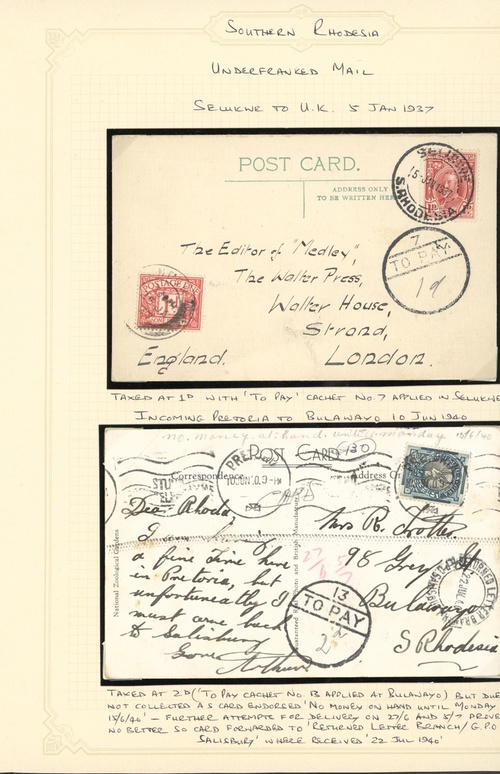 SOUTHERN RHODESIA
UNDERFRANKED MAIL
SELUKWE TO U.K. 5 JAN 1937
POST CARD.
ADDRESS ONLY
TO BE WRITTEN HERE
SELUKWE
15 JAN 1937
S. RHODESIA
7
TO PAY
1d
The Editor of "Medley",
The Walter Press,
Walter House,
Strand,
England. London.
POSTAGE DUE
TAXED AT 1D WITH 'TO PAY' CACHET NO. 7 APPLIED IN SELUKWE
INCOMING PRETORIA TO BULAWAYO 10 JUN 1940
no money at hand until Monday 15/6/40
POST CARD
(130)
Correspondence
Address
PRETORIA
10 JUN 40. 9-PM
CARD
Dear Rhoda
I
a fine time here
in Pretoria, but
unfortunately I
must come back
to Salisbury
Love
Arthur
National Zoological Gardens
Mrs R. Trotter
98 Grey St
Bulawayo
S Rhodesia
27/6 5/7
13
TO PAY
2d
RETURNED LETTER BRANCH
22 JUL
TAXED AT 2D ('TO PAY CACHET NO. 13 APPLIED AT BULAWAYO) BUT DUE
NOT COLLECTED AS CARD ENDORSED 'NO MONEY ON HAND UNTIL MONDAY
15/6/40' – FURTHER ATTEMPTS FOR DELIVERY ON 27/6 AND 5/7 PROVED
NO BETTER SO CARD FORWARDED TO 'RETURNED LETTER BRANCH/G.P.O
SALISBURY' WHERE RECEIVED '22 JUL 1940'